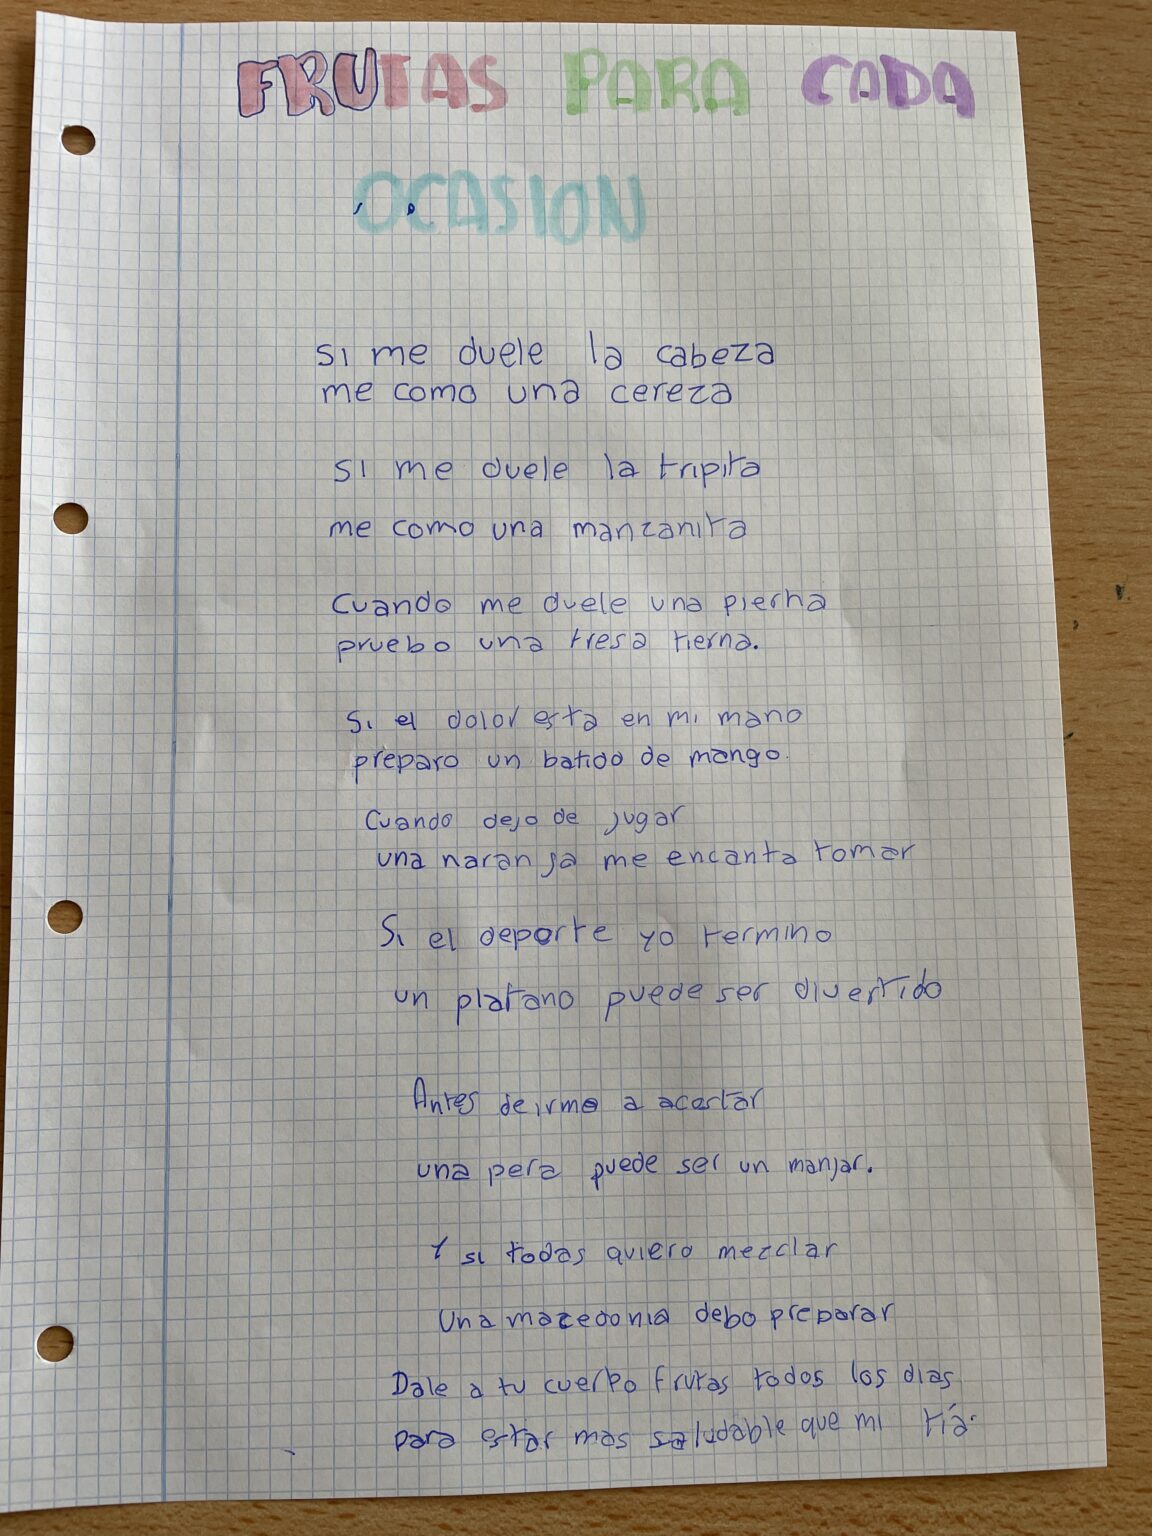 FRUTAS PARA CADA
OCASION
Si me duele la cabeza
me como una cereza
Si me duele la tripita
me como una manzanita
Cuando me duele una pierna
pruebo una fresa tierna.
Si el dolor esta en mi mano
preparo un batido de mango.
Cuando dejo de jugar
una naranja me encanta tomar
Si el deporte yo termino
un platano puede ser divertido
Antes de irme a acostar
una pera puede ser un manjar.
Y si todas quiero mezclar
Una macedonia debo preparar
Dale a tu cuerpo frutas todos los dias
para estar mas saludable que mi tía.